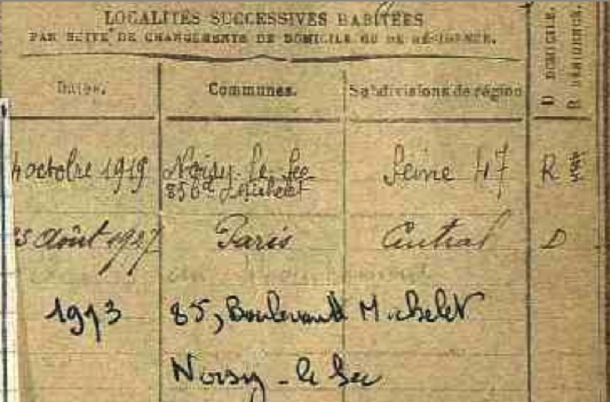 LOCALITÉS SUCCESSIVES HABITÉES
PAR SUITE DE CHANGEMENTS DE DOMICILE OU DE RÉSIDENCE.
Dates. Communes. Subdivisions de région D. DOMICILE. R. RÉSIDENCE.
octobre 1919 Noisy-le-Sec Seine 47 R
85 Bd Michelet
Août 1927 Paris Central D
19 3 85, Boulevard Michelet
Noisy-le Sec